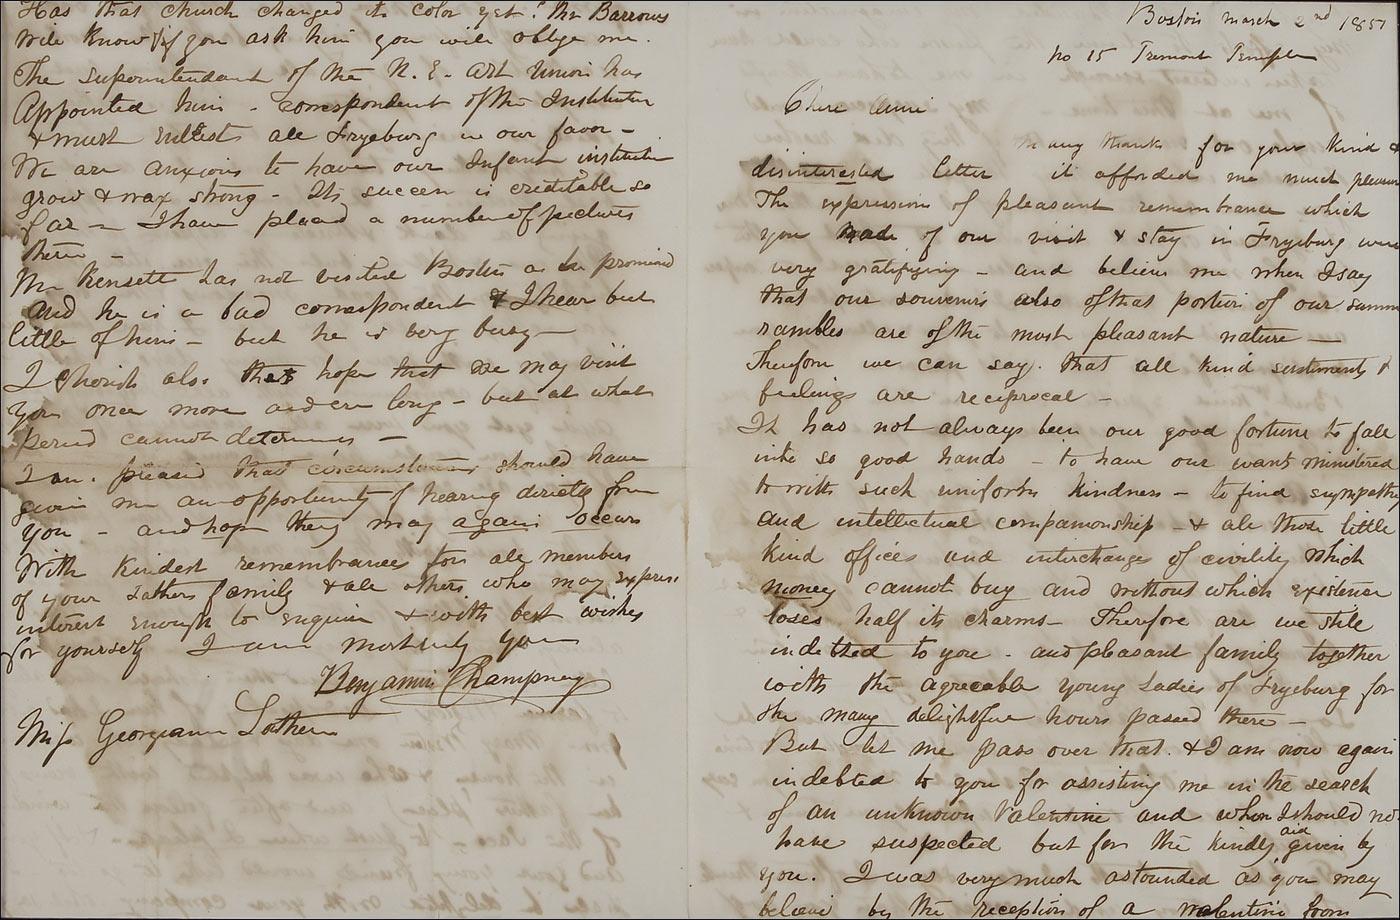 Boston March 2nd 1851
No 15 Tremont Temple
Chere Amie
Many thanks for your kind &
disinterested letter it afforded me much
The expressions of pleasant remembrance which
you made of our visit & stay in Fryeburg were
very gratifying - and believe me when I say
that our souvenirs also of that portion of our
rambles are of the most pleasant nature —
Therefore we can say. that all kind sentiments &
feelings are reciprocal -
It has not always been our good fortune to fall
into so good hands - to have our want ministered
to with such uniform kindness - to find
and intellectual companionship - & all those little
kind offices and interchanges of civility which
money cannot buy and without which existence
loses half its charms - Therefore are we still
indebted to you - and pleasant family together
with the agreeable young Ladies of Fryeburg for
the many delightful hours passed there -
But let me pass over that. & I am now again
indebted to you for assisting me in the search
of an unknown Valentine and whom I should
have suspected but for the kindly aid given by
you. I was very much astounded as you may
believe by the reception of a valentine from
Has that church changed its color yet? Mr Barrows
will know & if you ask him you will oblige me.
The Superintendant of the N. E. Art Union has
Appointed him - correspondent of the Institution
& must enlist all Fryeburg in our favor -
We are anxious to have our Infant institution
grow & wax strong - Its success is creditable so
far - I have placed a number of pictures
there -
Mr Kensett has not visited Boston as he promised
and he is a bad correspondent & I hear but
little of him - but he is very busy -
I cherish also that hope that we may visit
you once more and ere long - but at what
period cannot determine -
I am pleased that circumstances should have
given me an opportunity of hearing directly from
you - and hope they may again occur
With kindest remembrances for all members
of your Fathers family & all others who may express
interest enough to enquire & with best wishes
for yourself I am most truly yours
Benjamin Champney
Miss Georgiann